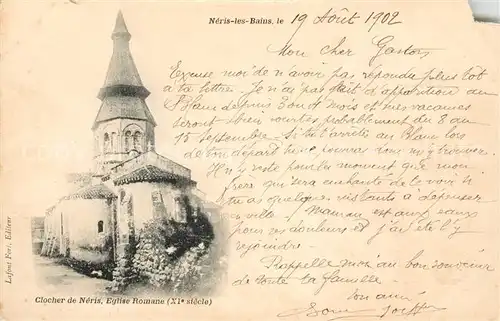 Néris-les-Bains, le 19 Août 1902
Mon Cher Gaston
Excuse moi de n'avoir pas répondu plus tôt
à ta lettre. Je n'ai pas fait d'apparition au
Blanc depuis 3 mois et mes vacances
seront bien courtes probablement du 8 au
15 Septembre - Si tu t'arrêtes au Blanc lors
de ton départ tu pourras m'y trouver.
Il n'y reste pour le moment que mon
frère qui sera enchanté de te voir si
tu as quelques instants à dépenser
en ville. Maman est aux eaux
pour ses douleurs et j'ai été l'y
rejoindre -
Rappelle moi au bon souvenir
de toute ta famille -
Ton ami
Clocher de Néris, Eglise Romane (XIe siècle)
Editeur